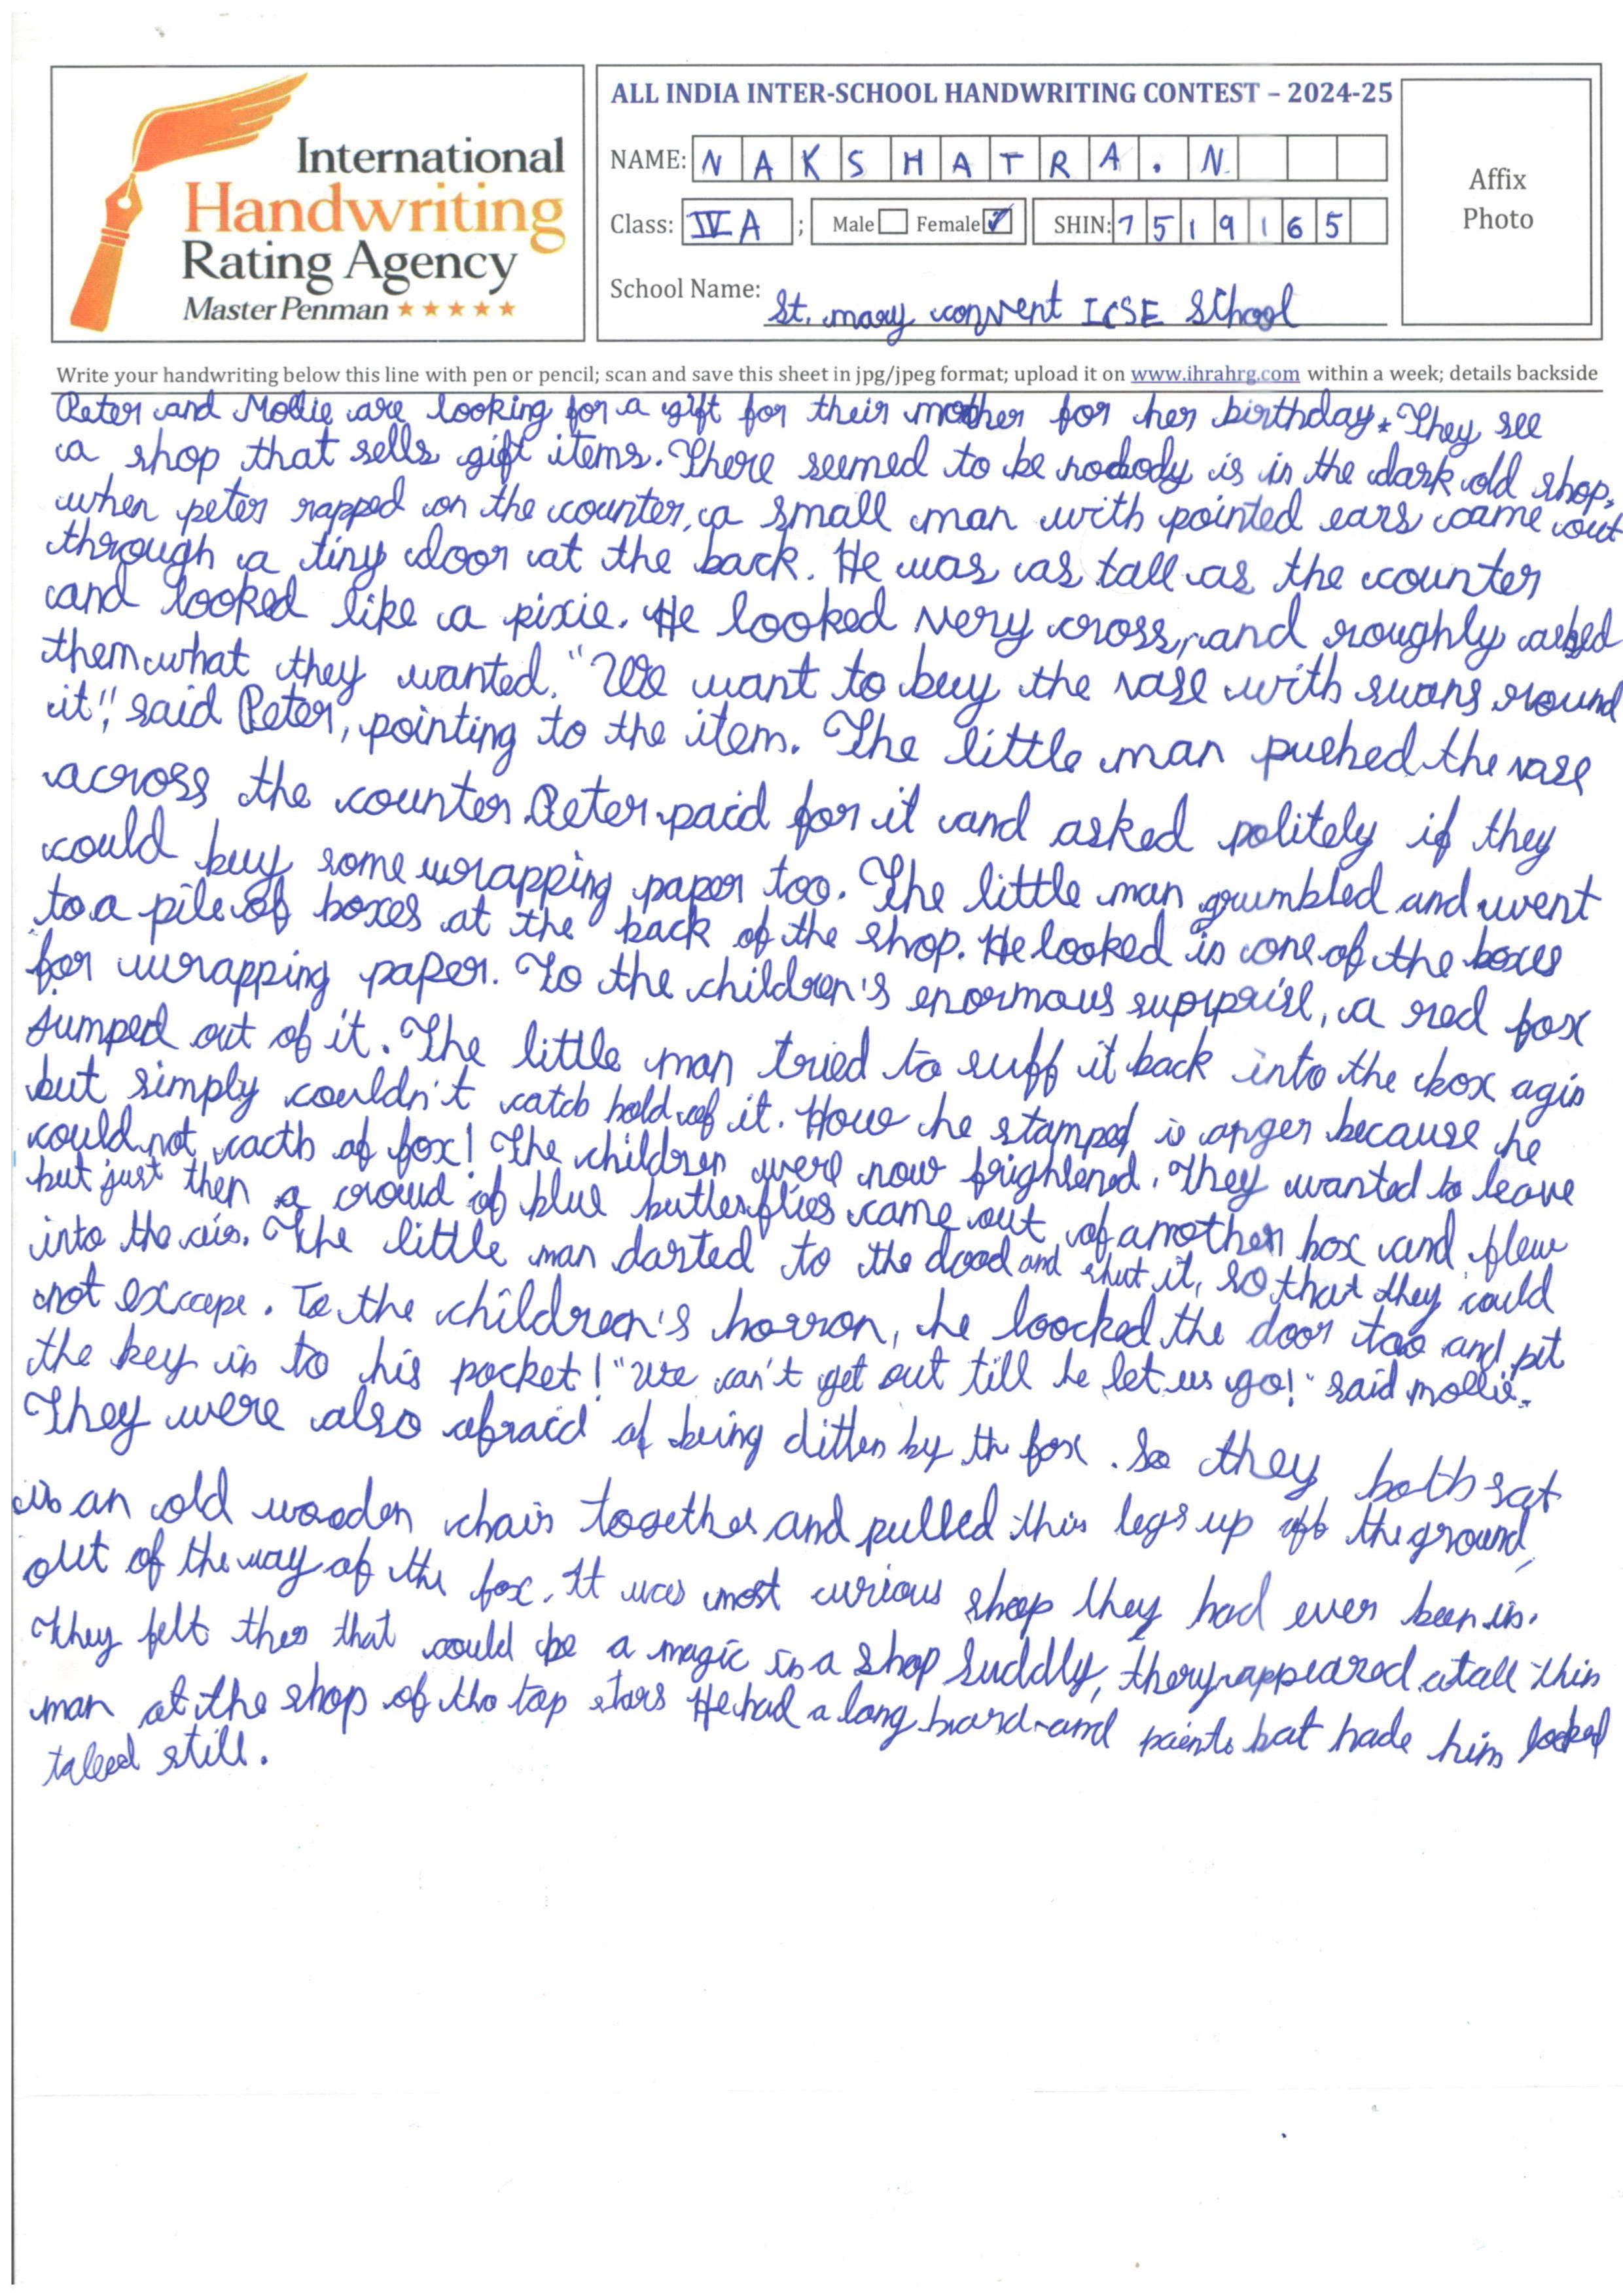 International
Handwriting
Rating Agency
Master Penman ★★★★★
ALL INDIA INTER-SCHOOL HANDWRITING CONTEST – 2024-25
NAME: NAKSHATRA. N.
Class: IV A ; Male Female ✓ SHIN: 7519165
School Name: St. mary convent ICSE School
Affix
Photo
Write your handwriting below this line with pen or pencil; scan and save this sheet in jpg/jpeg format; upload it on www.ihrahrg.com within a week; details backside
Peter and Mollie are looking for a gift for their mother for her birthday. They see
a shop that sells gift items. There seemed to be nobody is in the dark old shop,
when peter rapped on the counter, a small man with pointed ears came out
through a tiny door at the back. He was as tall as the counter
and looked like a pixie. He looked very cross, and roughly asked
them what they wanted. "We want to buy the vase with swans round
it", said Peter, pointing to the item. The little man pushed the vase
across the counter. Peter paid for it and asked politely if they
could buy some wrapping paper too. The little man grumbled and went
to a pile of boxes at the back of the shop. He looked in one of the boxes
for wrapping paper. To the children's enormous surprise, a red fox
jumped out of it. The little man tried to suff it back into the box agin
but simply couldn't catch hold of it. How he stamped in anger because he
could not cacth of fox! The children were now frightened. They wanted to leave
but just then a crowd of blue butterflies came out of another box and flew
into the air. The little man darted to the dood and shut it, so that they could
not excape. To the children's horron, he loocked the door too and pit
the key in to his pocket! "We can't get out till he let us go!" said mollie.
They were also afraid of being ditten by th fox. So they both sat
in an old wooden chair together and pulled thin legs up off the ground,
out of the way of the fox. It was most curious shop they had ever been in.
They felt ther that could be a magic in a shop Suddly, there appeared a tall thin
man at the shop of the top stars He had a long beard and paints hat hade him looked
talled still.